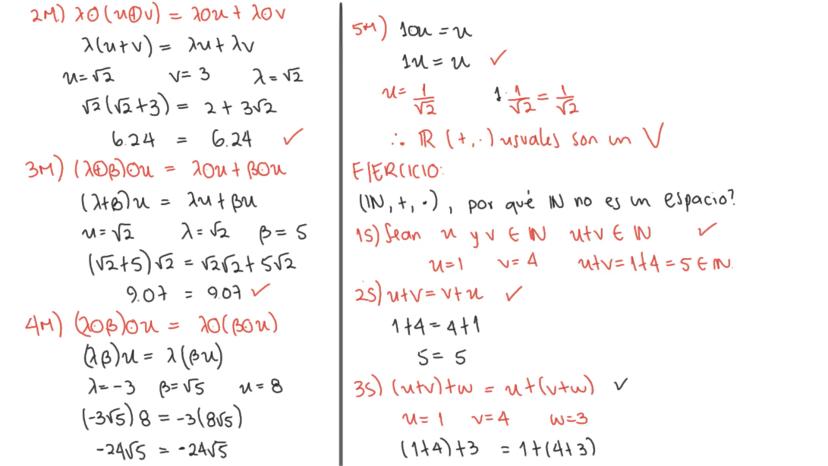 2M) λ⊙(u⊕v) = λ⊙u + λ⊙v
λ(u+v) = λu + λv
u=√2 v=3 λ=√2
√2(√2+3) = 2 + 3√2
6.24 = 6.24 ✓
3M) (λ⊕β)⊙u = λ⊙u + β⊙u
(λ+β)u = λu + βu
u=√2 λ=√2 β=5
(√2+5)√2 = √2√2 + 5√2
9.07 = 9.07 ✓
4M) (λ⊙β)⊙u = λ⊙(β⊙u)
(λβ)u = λ(βu)
λ=-3 β=√5 u=8
(-3√5)8 = -3(8√5)
-24√5 = -24√5
5M) 1⊙u = u
1u = u ✓
u= 1/√2 1·1/√2 = 1/√2
∴ ℝ (+,·) usuales son un V
EJERCICIO:
(ℕ, +, ·), por qué ℕ no es un espacio?
1S) Sean u y v ∈ ℕ u+v ∈ ℕ ✓
u=1 v=4 u+v=1+4=5 ∈ ℕ
2S) u+v = v+u ✓
1+4 = 4+1
5 = 5
3S) (u+v)+w = u+(v+w) ✓
u=1 v=4 w=3
(1+4)+3 = 1+(4+3)